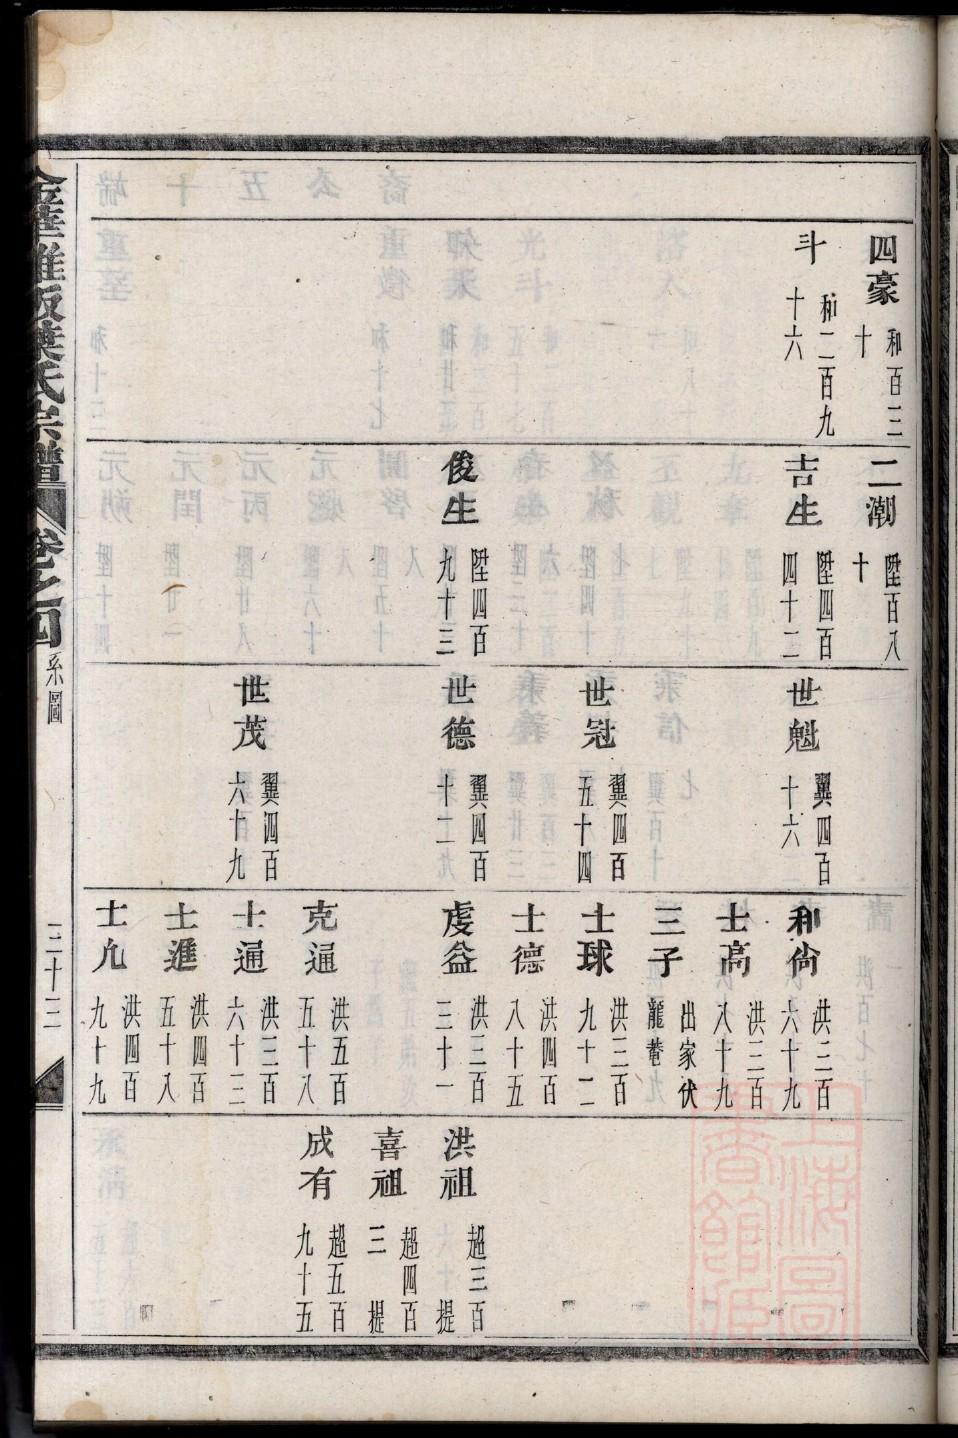 四豪 和百三十
斗 和二百九十六
二潮 陞百八十
吉生 陞四百四十二
俊生 陞四百九十三
世魁 翼四百十六
世冠 翼四百五十四
世德 翼四百十二
世茂 翼四百六十九
和尙 洪三百六十九
士高 洪三百八十九
三子 出家伏龍菴
士球 洪三百九十二
士德 洪四百八十五
虔益 洪三百三十一
克通 洪五百五十八
士通 洪三百六十三
士進 洪四百五十八
士允 洪四百九十九
洪祖 超三百 提
喜祖 超四百三 提
成有 超五百九十五
葉氏宗譜 卷之四 系圖 三十三
上海圖書館藏